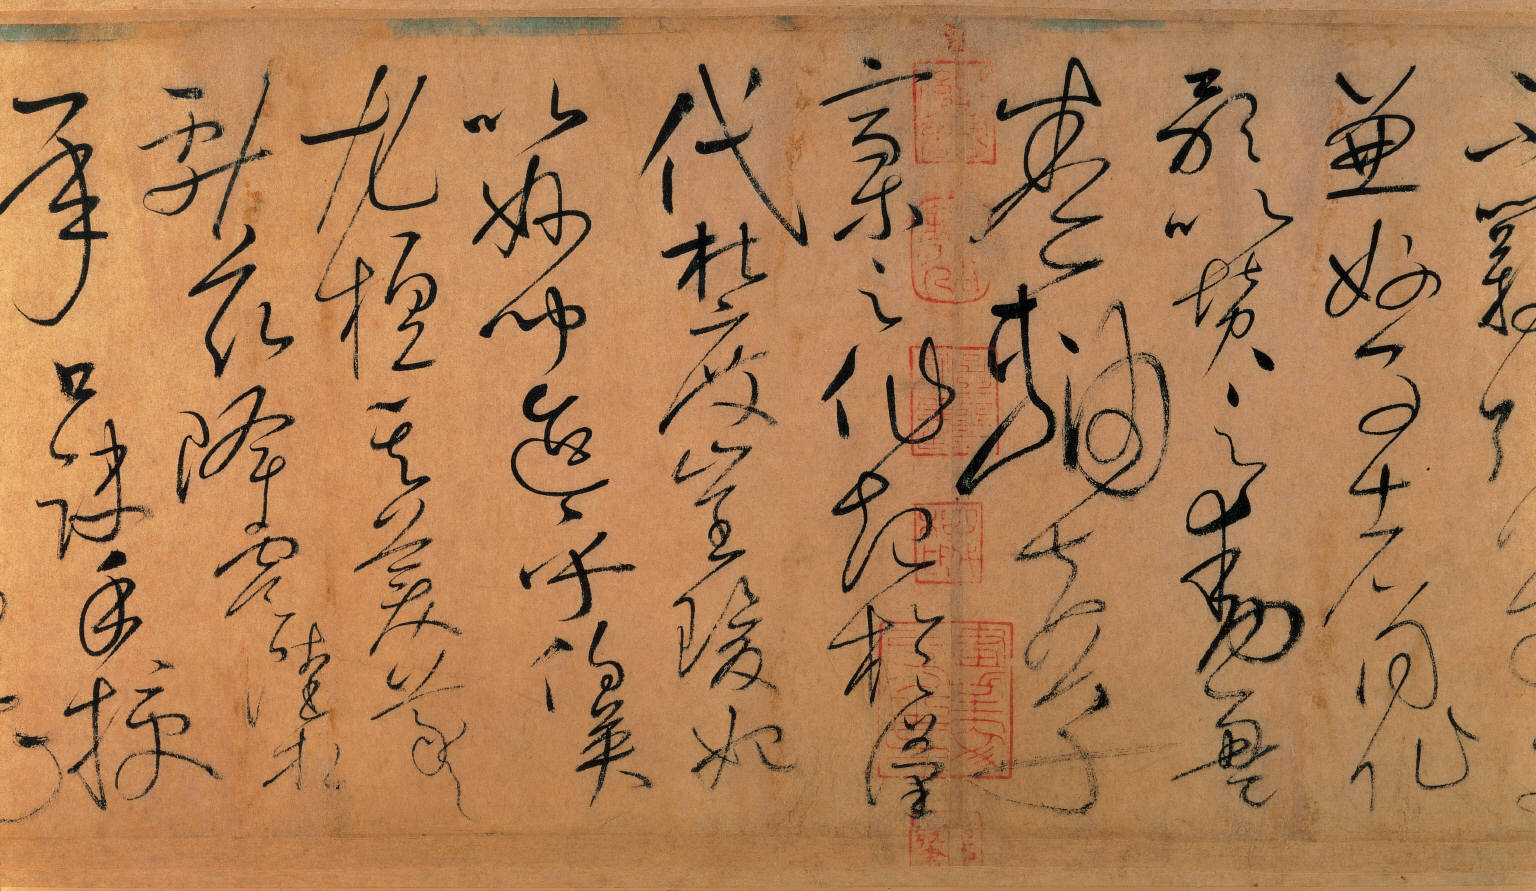 不羈引
兼好事者同作
歌以贊之動盈
卷軸夫草
稿之作起於漢
代杜度崔瑗始
以妙聞迨乎伯英
尤擅其美羲
獻茲降虞陸相
承口訣手授